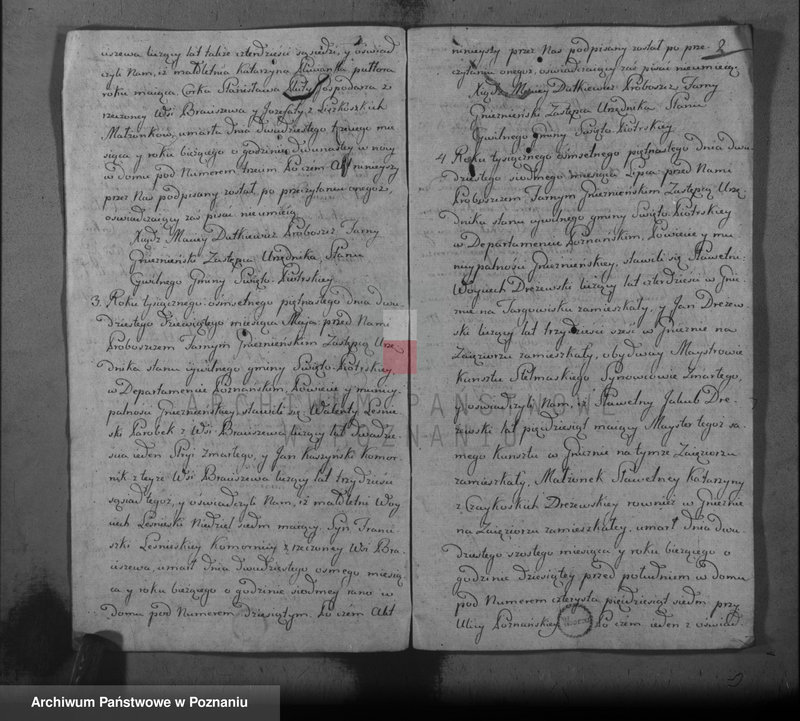 ciszewa liczący lat także czterdzieści sąsiedzi, y oświad
czyli Nam, iż małoletnia Katarzyna Śliwianka pułtora
roku maiąca Corka Stanisława Gospodarza z
rzeczoney Wsi Braciszewa y Jozefaty z
Małżonkow, umarła dnia dwudziestego trzeciego mie
siąca y roku bieżącego o godzinie dwunastey w nocy
w domu pod Numerem trzecim Po czem Akt ninieyszy
przez Nas podpisany został po przeczytaniu onegoż,
oświadczaiący zaś pisać nieumieią
Xiądz Maciey Dutkiewicz Proboszcz Farny
Gnieznieński Zastępca Urzędnika Stanu
Cywilnego Gminy Święto-Piotrskiey
3. Roku tysiącznego osmsetnego piętnastego dnia dwu
dziestego dziewiątego miesiąca Maja przed Nami
Proboszczem Farnym Gnieznieńskim Zastępcą Urzę
dnika stanu cywilnego gminy Święto-Piotrskiey,
w Departamencie Poznańskim, Powiecie y municy
palnosci Gnieznienskiey, stawili się Walenty Lesnie
ski Parobek z Wsi Braciszewa liczący lat dwadzie
scia ieden Stryi Zmarłego, y Jan Kaszyński komor
nik z teyże Wsi Braciszewa liczący lat trzydzieści
sąsiad tegoż, y oświadczyli Nam, iż małoletni Woy
ciech Lesnieski Niedziel siedm maiący, Syn Franci
szki Lesnieskiey Komornicy z rzeczoney Wsi Bra
ciszewa, umarł dnia dwudziestego osmego miesią
ca y roku bieżącego o godzinie siodmey rano w
domu pod Numerem dziesiątym. Po czem Akt
2
ninieyszy przez Nas podpisany został po prze
czytaniu onegoż, oświadczaiący zaś pisać nieumieią
Xiądz Maciey Dutkiewicz Proboszcz Farny
Gnieznieński Zastępca Urzędnika Stanu
Cywilnego Gminy Święto Piotrskiey
4. Roku tysiącznego osmsetnego piętnastego dnia dwu
dziestego siodmego miesiąca Lipca przed Nami
Proboszczem Farnym Gnieznieńskim Zastępcą Urzę
dnika stanu cywilnego gminy Święto-Piotrskiey
w Departamencie Poznańskim, Powiecie y mu
nicypalności Gnieznieńskiey, stawili się Sławetni
Woyciech Drezewski liczący lat czterdzieści w Gnie
znie na Targowisku zamieszkały, y Jan Drezew
ski liczący lat trzydzieści sześć w Gnieznie na
Zaięziorzu zamieszkały, obydway Maystrowie
Kunsztu Stelmaskiego Synowcowie Zmarłego,
y oświadczyli Nam, iż Sławetny Jakub Dre
zewski lat piędziesiąt maiący Mayster tegoż sa
mego kunsztu w Gnieznie na tymże Zaięziorzu
zamieszkały, Małżonek Sławetney Katarzyny
z Czaykoskich Drezewskiey rownież w Gnieznie
na Zaięziorzu zamieszkałey, umarł dnia dwu
dziestego szostego miesiąca y roku bieżącego o
godzinie dziesiątey przed południem w domu
pod Numerem czterysta piędziesiąt siedm przy
Ulicy Poznańskiey Po czem ieden z oświad
ARCHIWUM PAŃSTWOWE
W POZNANIU
Archiwum Państwowe w Poznaniu